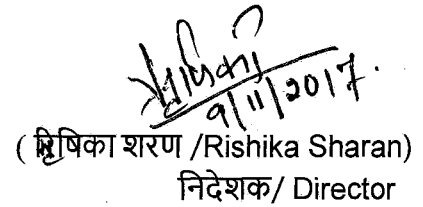 9/11/2017.
( रिषिका शरण /Rishika Sharan)
निदेशक/ Director